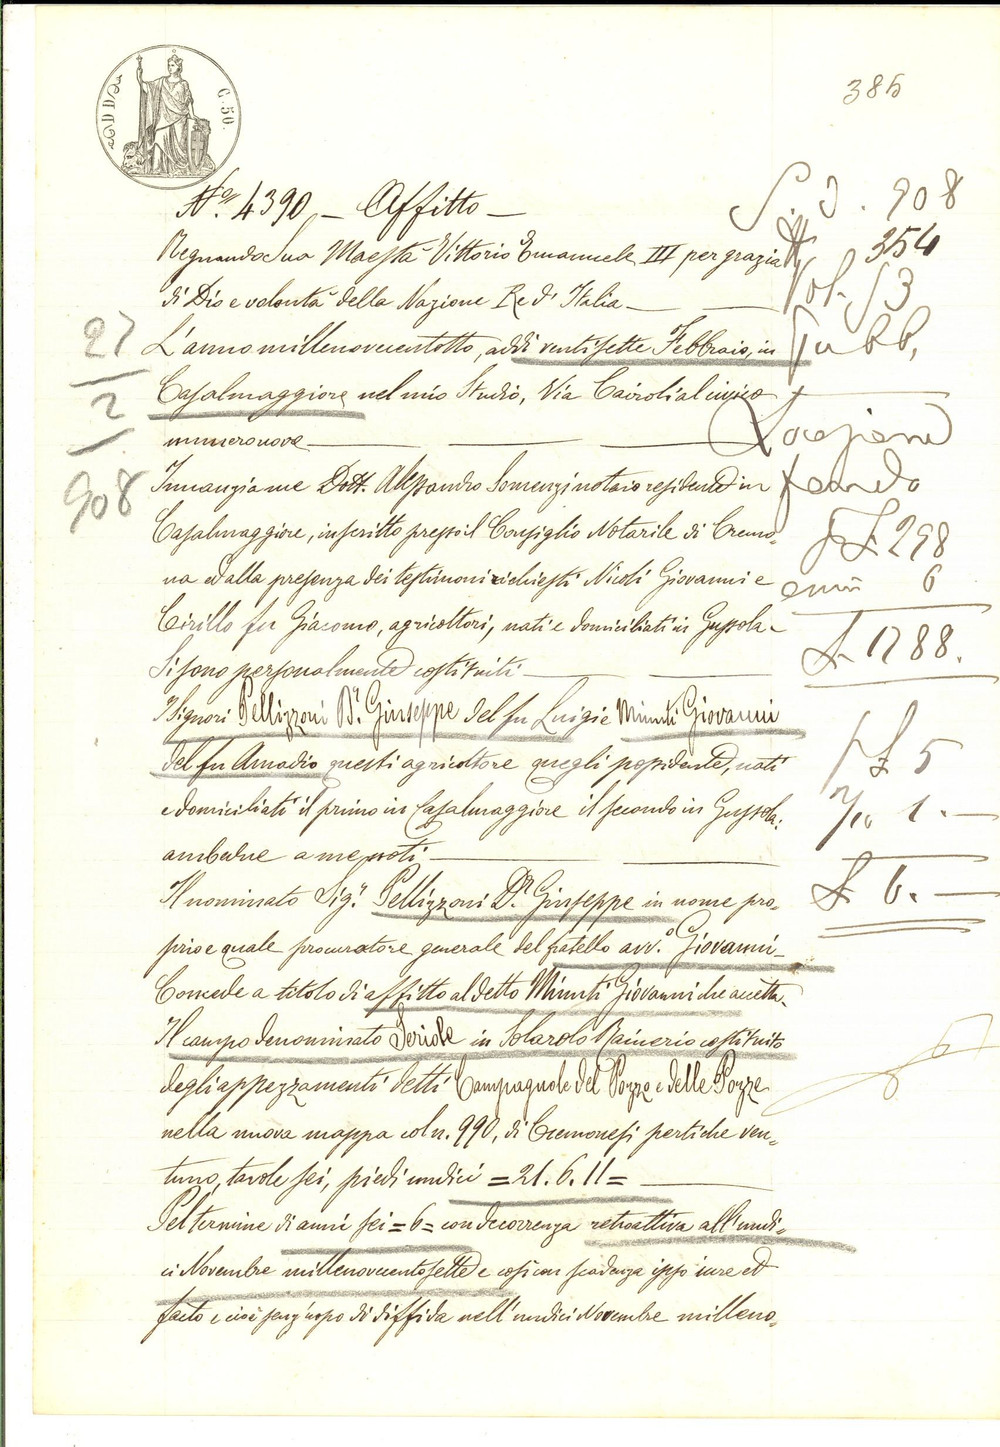 385
C. 50.
N.° 4390 - Affitto -
Regnando Sua Maestà Vittorio Emanuele III per grazia
di Dio e volontà della Nazione Re d'Italia
L'anno millenovecentotto, addì ventisette Febbraio, in
Casalmaggiore nel mio Studio, Via Cairoli al civico
numero nove
Innanzi a me Dott. Alessandro Somenzi notaio residente in
Casalmaggiore, inscritto presso il Consiglio Notarile di Cremo-
na ed alla presenza dei testimoni richiesti Nicoli Giovanni e
Cirillo fu Giacomo, agricoltori, nati e domiciliati in Gussola -
Si sono personalmente costituiti
I Signori Pellizzoni D.r Giuseppe del fu Luigi e Minuti Giovanni
del fu Amadio questi agricoltore quegli possidente, nati
e domiciliati il primo in Casalmaggiore il secondo in Gussola:
ambedue a me noti
Il nominato Sig.r Pellizzoni D.r Giuseppe in nome pro-
prio e quale procuratore generale del fratello avv.o Giovanni -
Concede a titolo di affitto al detto Minuti Giovanni che accetta -
Il campo denominato Seriole in Solarolo Rainerio costituito
degli appezzamenti detti Campagnole del Pozzo e delle Pozze
nella nuova mappa col n. 990, di Cremonesi pertiche ven-
tuno, tavole sei, piedi undici = 21. 6. 11 =
Pel termine di anni sei = 6 = con decorrenza retroattiva all'undi-
ci Novembre millenovecentosette e così con scadenza ipso iure et
facto e cioè senz'uopo di diffida nell'undici Novembre milleno-
27
2
908
908
354
Vol. 53
Pubb.
Locazione
fondo
£ 298
anni 6
£ 1788.
£ 5
1.-
£ 6.-